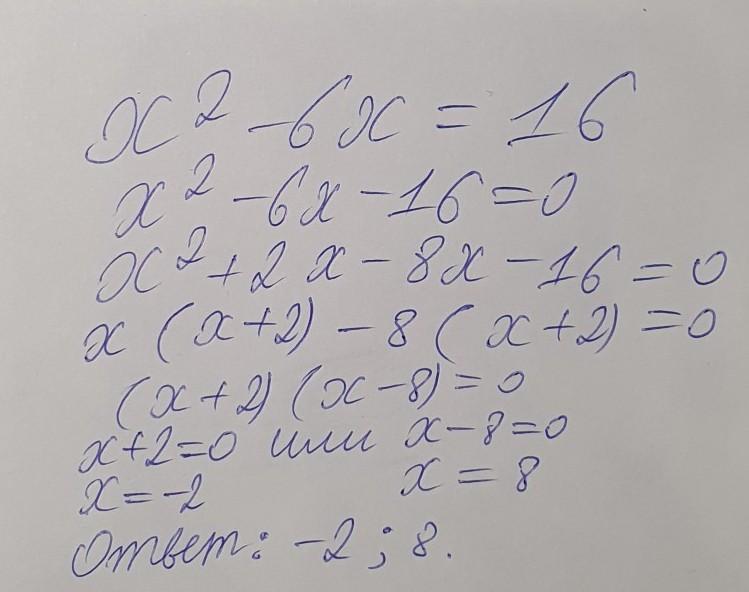 x² - 6x = 16
x² - 6x - 16 = 0
x² + 2x - 8x - 16 = 0
x (x + 2) - 8 (x + 2) = 0
(x + 2) (x - 8) = 0
x + 2 = 0 или x - 8 = 0
x = -2 x = 8
Ответ: -2 ; 8.